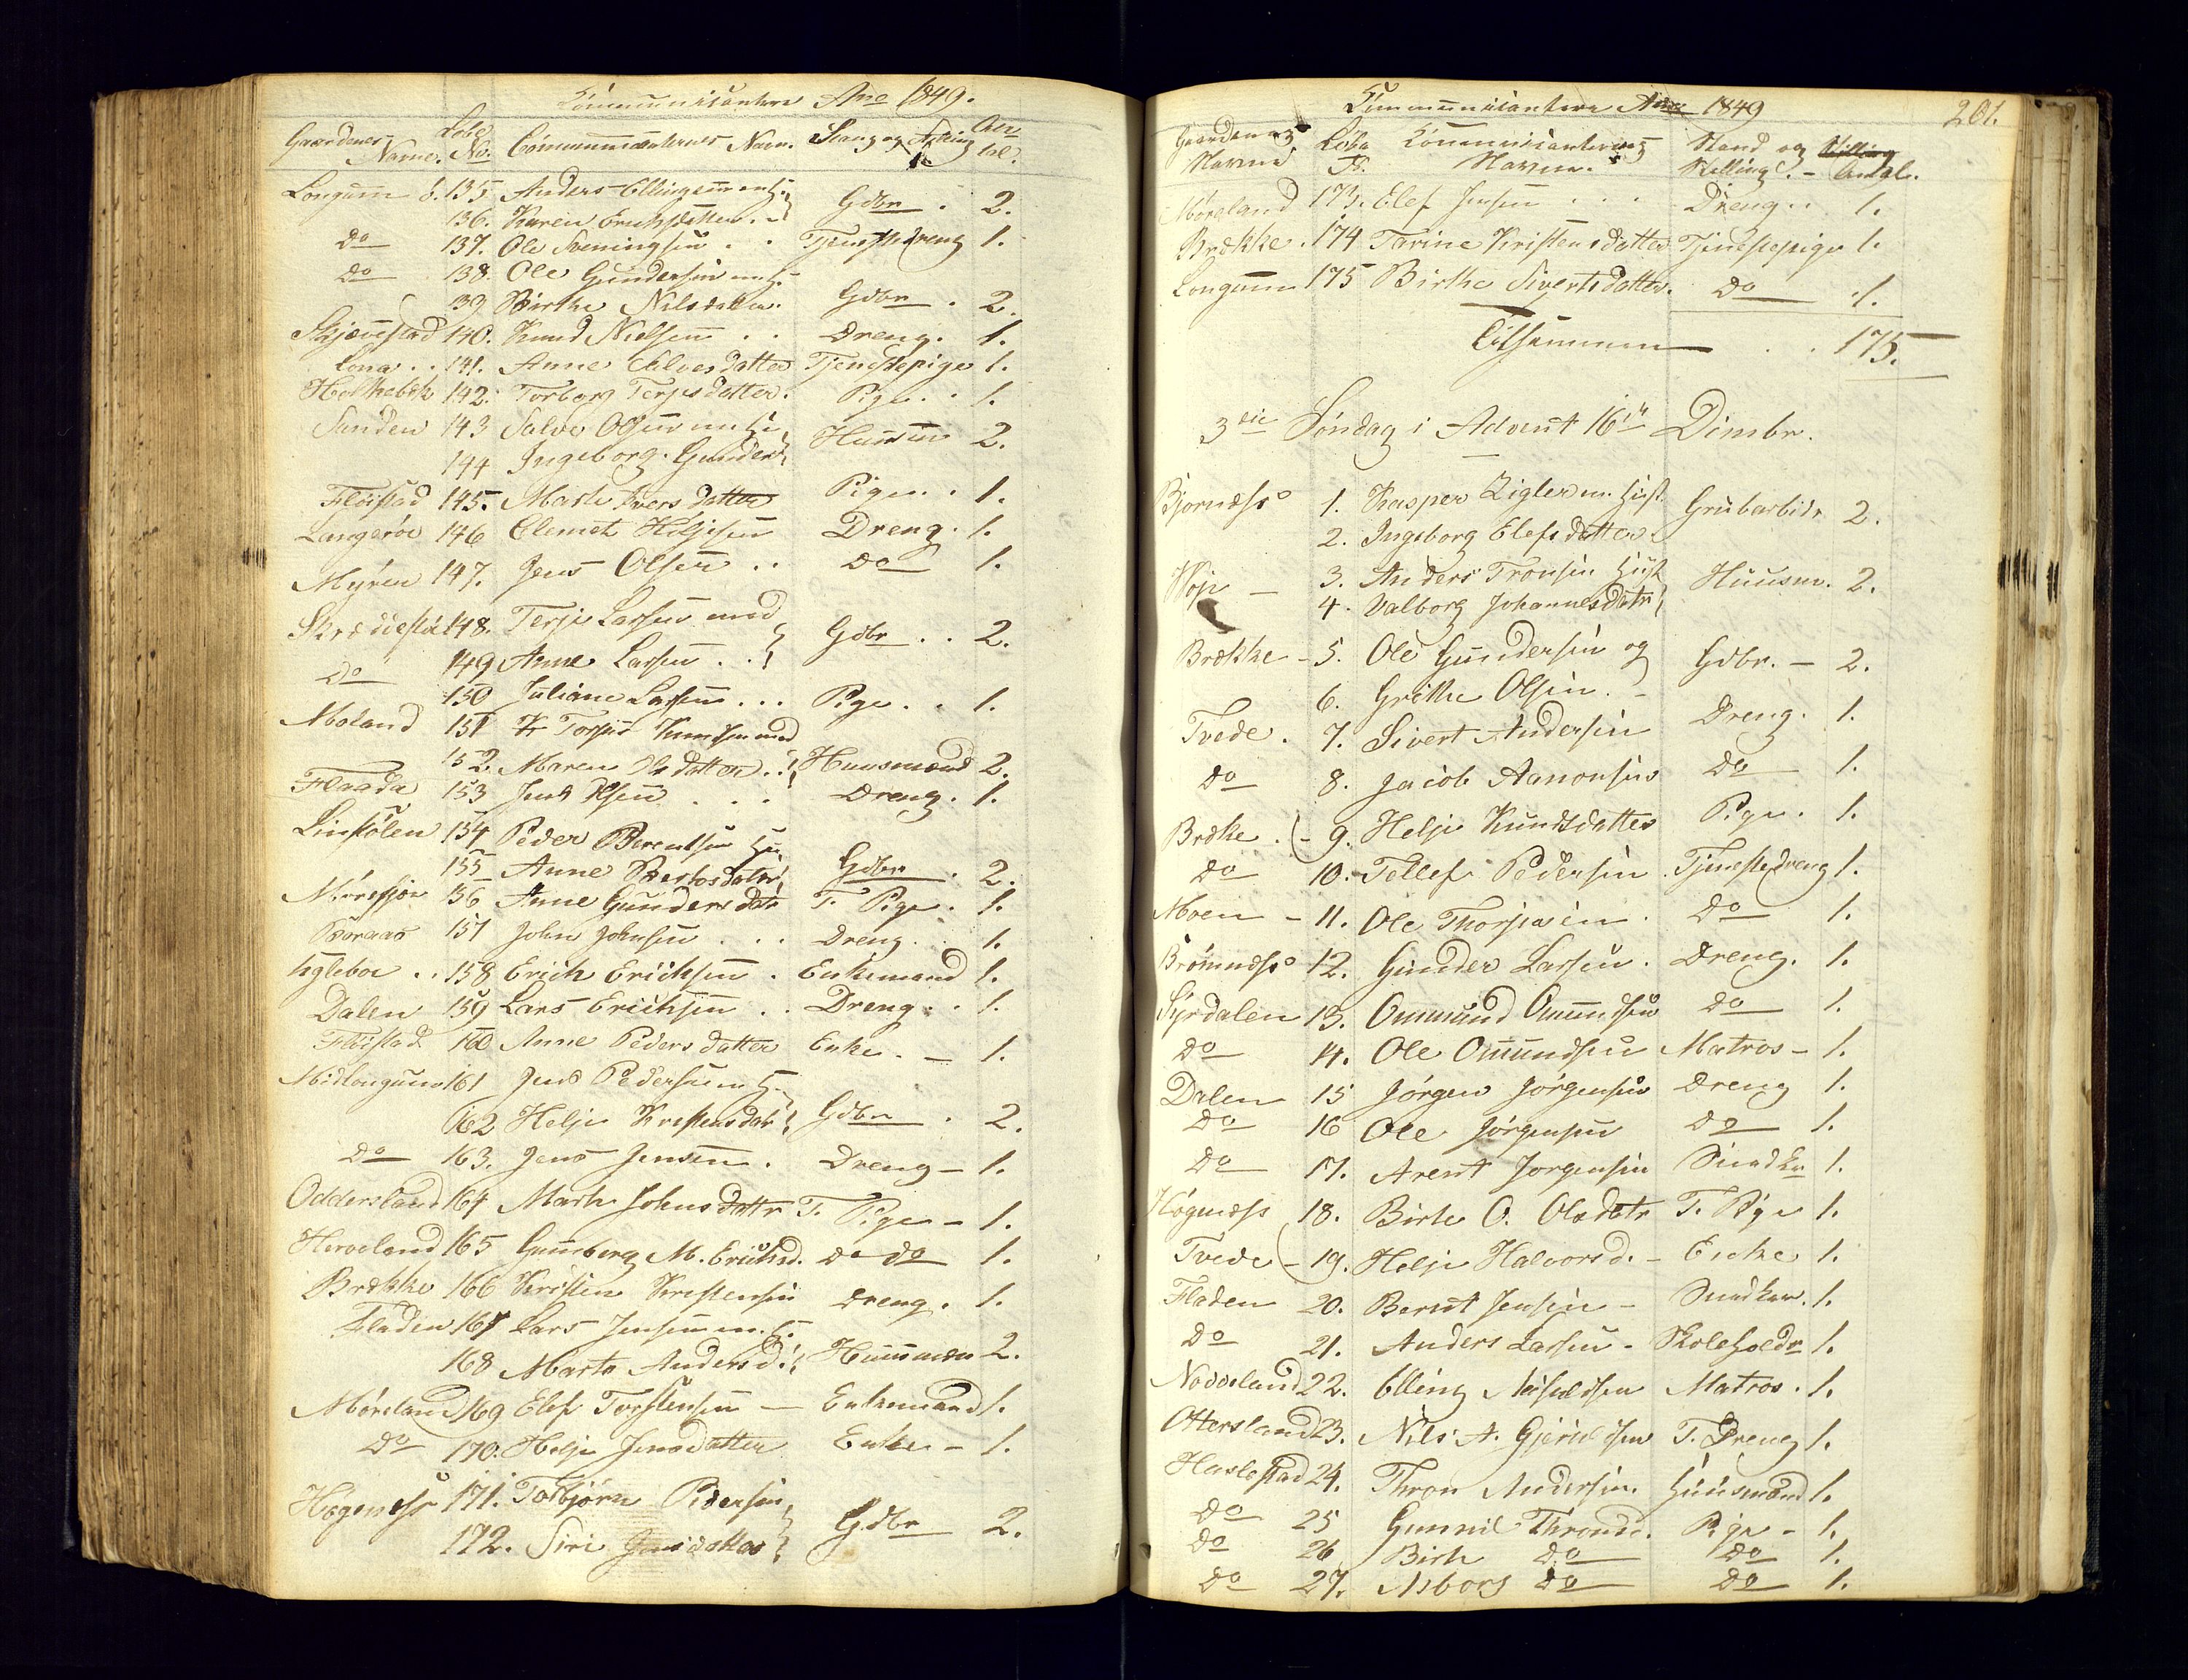 Communicantere Ano 1849.
Gaardenes Navne. Løbe No. Communicanternes Navn. Stand og Stilling Antal.
Longum 135. Anders Ellingsen m. H.
136. Karen Erichsdatter Gdbr 2.
Do 137. Ole Sveningsen Tjenstedreng 1.
Do 138. Ole Gundersen m. H.
39. Birthe Nilsdatter. Gdbr 2.
140. Knud Nielsen Dreng. 1.
Lona 141. Anne Alvesdatter Tjenstepige 1.
Holthebek 142. Torborg Terjesdatter. Pige 1.
Sanden 143 Salve Olsen m. H.
144 Ingeborg Gunders Husm 2.
Fløistad 145. Marthe Iversdatter Pige 1.
Langerøe 146 Clemet Dreng. 1.
Myren 147. Jens Olsen Do 1.
148. Terje Larsen med
Do 149 Anne Larsen Gdbr 2.
150 Juliane Larsen Pige 1.
Moland 151 Torjus Knudsen med
152. Maren Olsdatter Huusmand 2.
Flaada 153 Jens Olsen Dreng. 1.
Linstølen 154 Peder Berentsen
155 Anne Gdbr 2.
156 Anne Gundersdatr T. Pige 1.
157 John Johnsen Dreng 1.
158 Erich Erichsen Enkemand 1.
Dalen 159 Lars Erichsen Dreng 1.
Fløistad 160 Anne Pedersdatter Enke 1.
Midlongum 161 Jens Pedersen m. H.
162 Helje Kristensdatr Gdbr 2.
Do 163. Jens Jensen. Dreng 1.
Oddersland 164 Marthe Johnsdattr T. Pige 1.
165 Gunborg M. Erichsd. do do 1.
Brække 166 Kristen Kristensen Dreng. 1.
Fladen 167 Lars Jensen m. H.
168 Marte Andersd. Huusmand 2.
Møreland 169 Elef Torstensen Enkemand 1.
Do 170. Helje Jensdatter Enke 1.
Høgenæss 171. Torbjørn Pedersen
172. Siri Jensdatter Gdbr 2.
Communicantere Ano 1849 201.
Gaardenes Navne. Løbe No. Communicanternes Navne. Stand og Stilling. Antal.
Møreland 173. Elef Jensen Dreng 1.
Brække. 174 Tarine Kristensdatter Tjenestepige 1.
Longum 175 Birthe Sivertsdatter. Do 1.
Tilsammen 175.
3die Søndag i Advent 16de Dcmbr.
Bjornæss 1. Kasper Zigler m. Hust.
2. Ingeborg Elefsdatter Grubarbidr 2.
Høje 3. Anders Tronsen Hust
4. Valborg Johannesdatr Huusm. 2.
Brække 5. Ole Gundersen og
6. Grethe Olsen. Gdbr. 2.
Tvede. 7. Sivert Andersen Dreng. 1.
Do 8. Jacob Aanonsen Do 1.
Bræke 9. Helje Knudsdatter Pige. 1.
Do 10. Tellef Pedersen Tjenestedreng 1.
Moen 11. Ole Do 1.
12. Gunder Larsen. Dreng. 1.
Syrdalen 13. Ommund Omundsen Do 1.
Do 14. Ole Omundsen Matros 1.
Dalen 15 Jørgen Jørgensen Dreng 1.
Do 16 Ole Jørgensen Do 1.
Do 17. Arent Jorgensen 1.
Høgenæss 18. Birte O. Olsdatr T. Pige 1.
Tvede 19. Helje Halvorsd. Encke 1.
Fladen 20. Berent Jensen 1.
Do 21. Anders Larsen Skoleholdr 1.
22. Elling Matros. 1.
Ottersland 23. Nils A. T. Dreng 1.
Haslestad 24. Thron Andersen. Huusmand 1.
Do 25 Gunnil Thronsd. Pige 1.
Do 26 Birthe Do Do 1.
Do 27. Asborg Do Do 1.